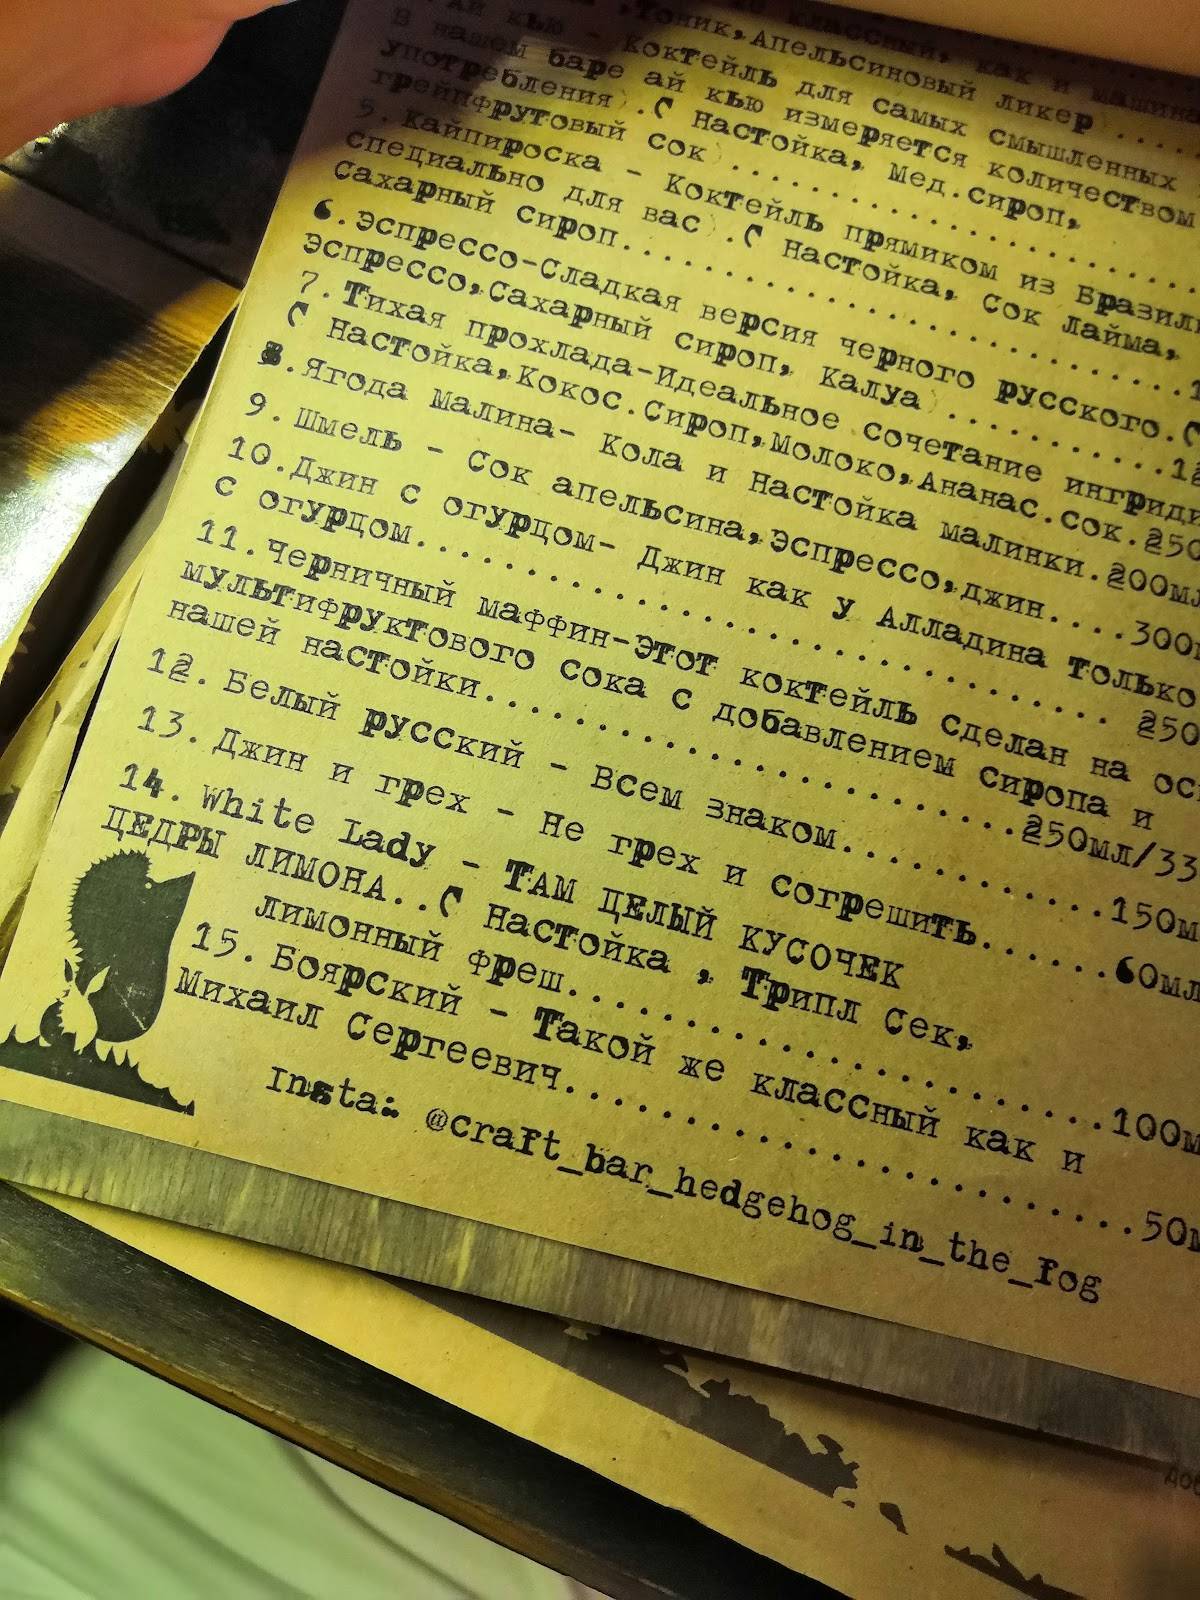 Тоник,Апельсиновый ликер
Ай кью - Коктейль для самых смышленных
В нашем баре ай кью измеряется количеством
употребления).( Настойка, Мед.сироп,
грейпфрутовый сок)..................
5. Кайпироска - Коктейль прямиком из Бразил
специально для вас).( Настойка, Сок лайма,
Сахарный сироп.........................1
6.Эспрессо-Сладкая версия черного русского.(
Эспрессо,Сахарный сироп, Калуа)............12
7.Тихая прохлада-Идеальное сочетание ингриди
( Настойка,Кокос.Сироп,Молоко,Ананас.сок.250
8.Ягода малина- Кола и Настойка малинки.200мл
9. Шмель - Сок апельсина,эспрессо,джин....300
10.Джин с огурцом- Джин как у Алладина только
с огурцом.......................... 250
11.Черничный маффин-Этот коктейль сделан на ос
мультифруктового сока с добавлением сиропа и
нашей настойки....................250мл/33
12. Белый русский - Всем знаком...........150м
13. Джин и грех - Не грех и согрешить......60мл
14. White Lady - ТАМ ЦЕЛЫЙ КУСОЧЕК
ЦЕДРЫ ЛИМОНА..( Настойка , Трипл Сек,
лимонный фреш......................100м
15. Боярский - Такой же классный как и
Михаил Сергеевич.......................50м
Insta: @craft_bar_hedgehog_in_the_fog